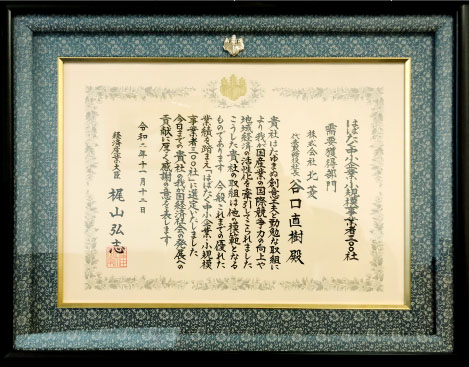 はばたく中小企業・小規模事業者三〇〇社
需要獲得部門
株式会社 北菱
代表取締役社長 谷口直樹 殿
貴社はたゆまぬ創意工夫と勤勉な取組に
より我が国産業の国際競争力の向上や
地域経済の活性化を牽引してこられました
こうした貴社の取組は他の模範となる
ものであります 今般これまでの優れた
業績を踏まえ「はばたく中小企業・小規模
事業者三〇〇社」に選定いたしました
今日までの貴社の我が国経済社会の発展への
貢献に厚く感謝の意を表します
令和二年十一月十二日
経済産業大臣 梶山弘志